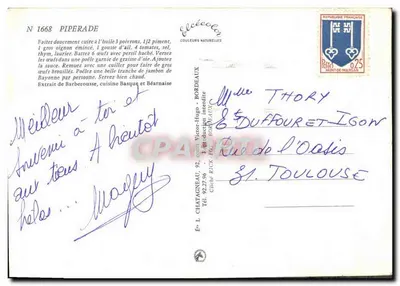 N 1668 PIPERADE
Faites doucement cuire à l'huile 3 poivrons, 1/2 piment,
1 gros oignon émincé, 1 gousse d'ail, 4 tomates, sel,
thym, laurier. Battre 6 œufs avec persil haché. Versez
les œufs dans une poêle garnie de graisse d'oie. Ajoutez
la sauce. Remuez avec une cuiller pour faire de gros
œufs brouillés. Poêlez une belle tranche de jambon de
Bayonne par personne. Servez bien chaud.
Extrait de Barberousse, cuisine Basque et Béarnaise
Meilleur
souvenir à toi et
aux tiens A bientôt
hélas...
Maguy
Elcécolor
COULEURS NATURELLES
Ets L. CHATAGNEAU, 92, cours Victor-Hugo - BORDEAUX
Tél. 92.27.96
REPUBLIQUE FRANÇAISE
POSTES
0,25
MONT-DE-MARSAN
Mme THORY
Ets DUFFOURET-IGON
Rue de l'Oasis
31. TOULOUSE